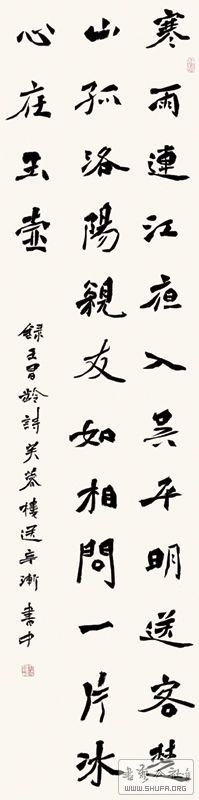 寒雨連江夜入吴平明送客楚
山孤洛陽親友如相問一片冰
心在玉壺
錄王昌齡詩芙蓉樓送辛漸 書中
WWW.SHUFA.ORG